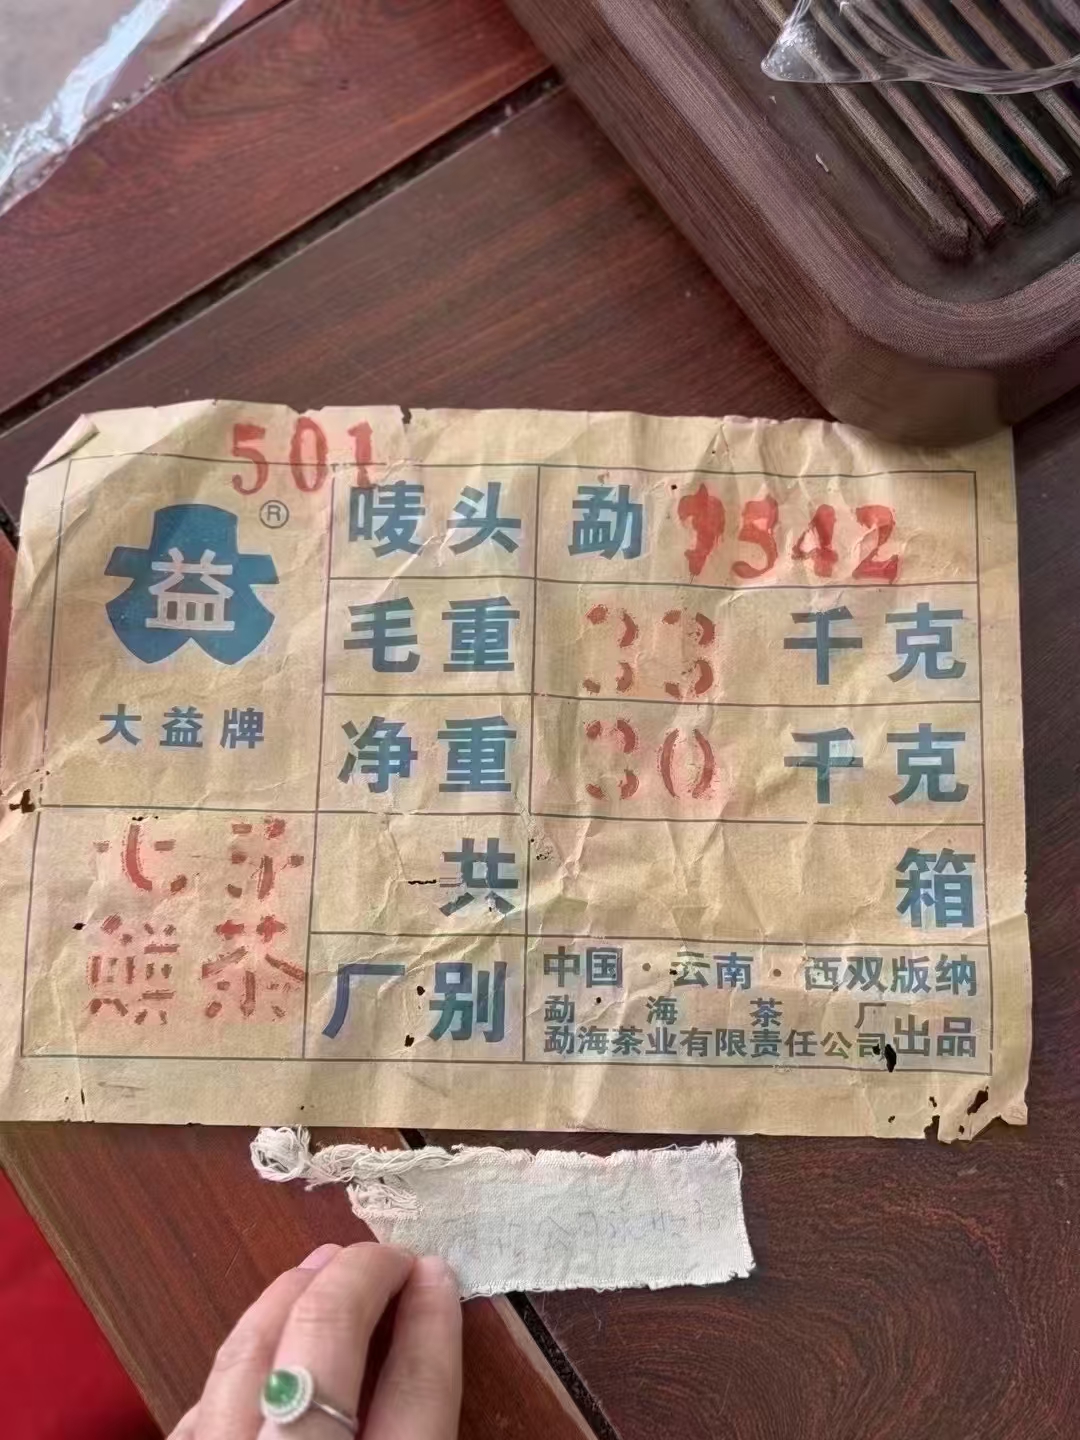 501
益
®
大益牌
唛头 勐 7542
毛重 33 千克
净重 30 千克
共 箱
七子
饼茶
厂别
中国·云南·西双版纳
勐海茶厂
勐海茶业有限责任公司出品